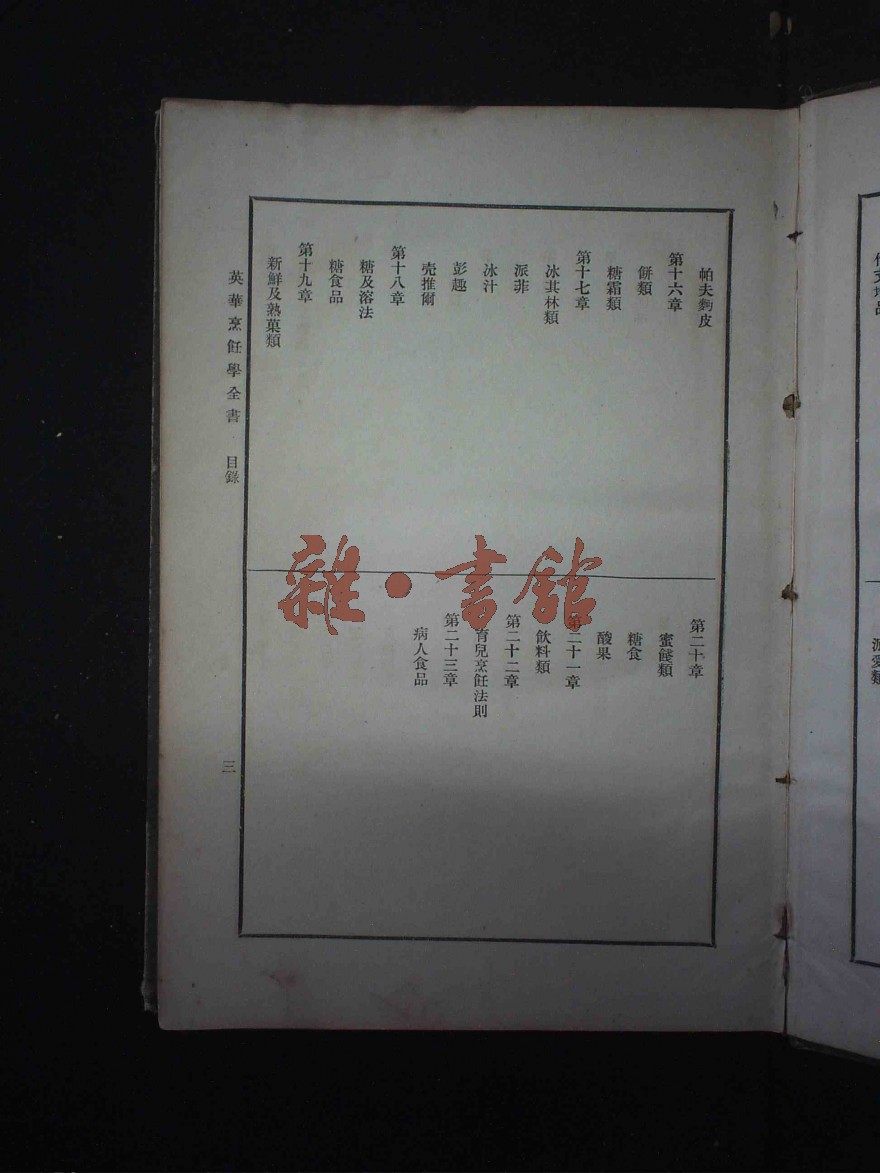 帕夫麪皮
第十六章
餅類
糖霜類
第十七章
冰其林類
派菲
冰汁
彭趣
壳推爾
第十八章
糖及溶法
糖食品
第十九章
新鮮及熟菓類
第二十章
蜜餞類
糖食
酸果
第二十一章
飲料類
第二十二章
育兒烹飪法則
第二十三章
病人食品
英華烹飪學全書 目錄
三
雜·書館
派愛類